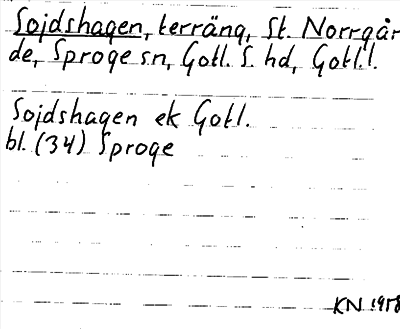 Sojdshagen, terräng, St. Norrgår
de, Sproge sn, Gotl. S. hd, Gotl.l.
Sojdshagen ek Gotl.
bl. (34) Sproge
KN 1958